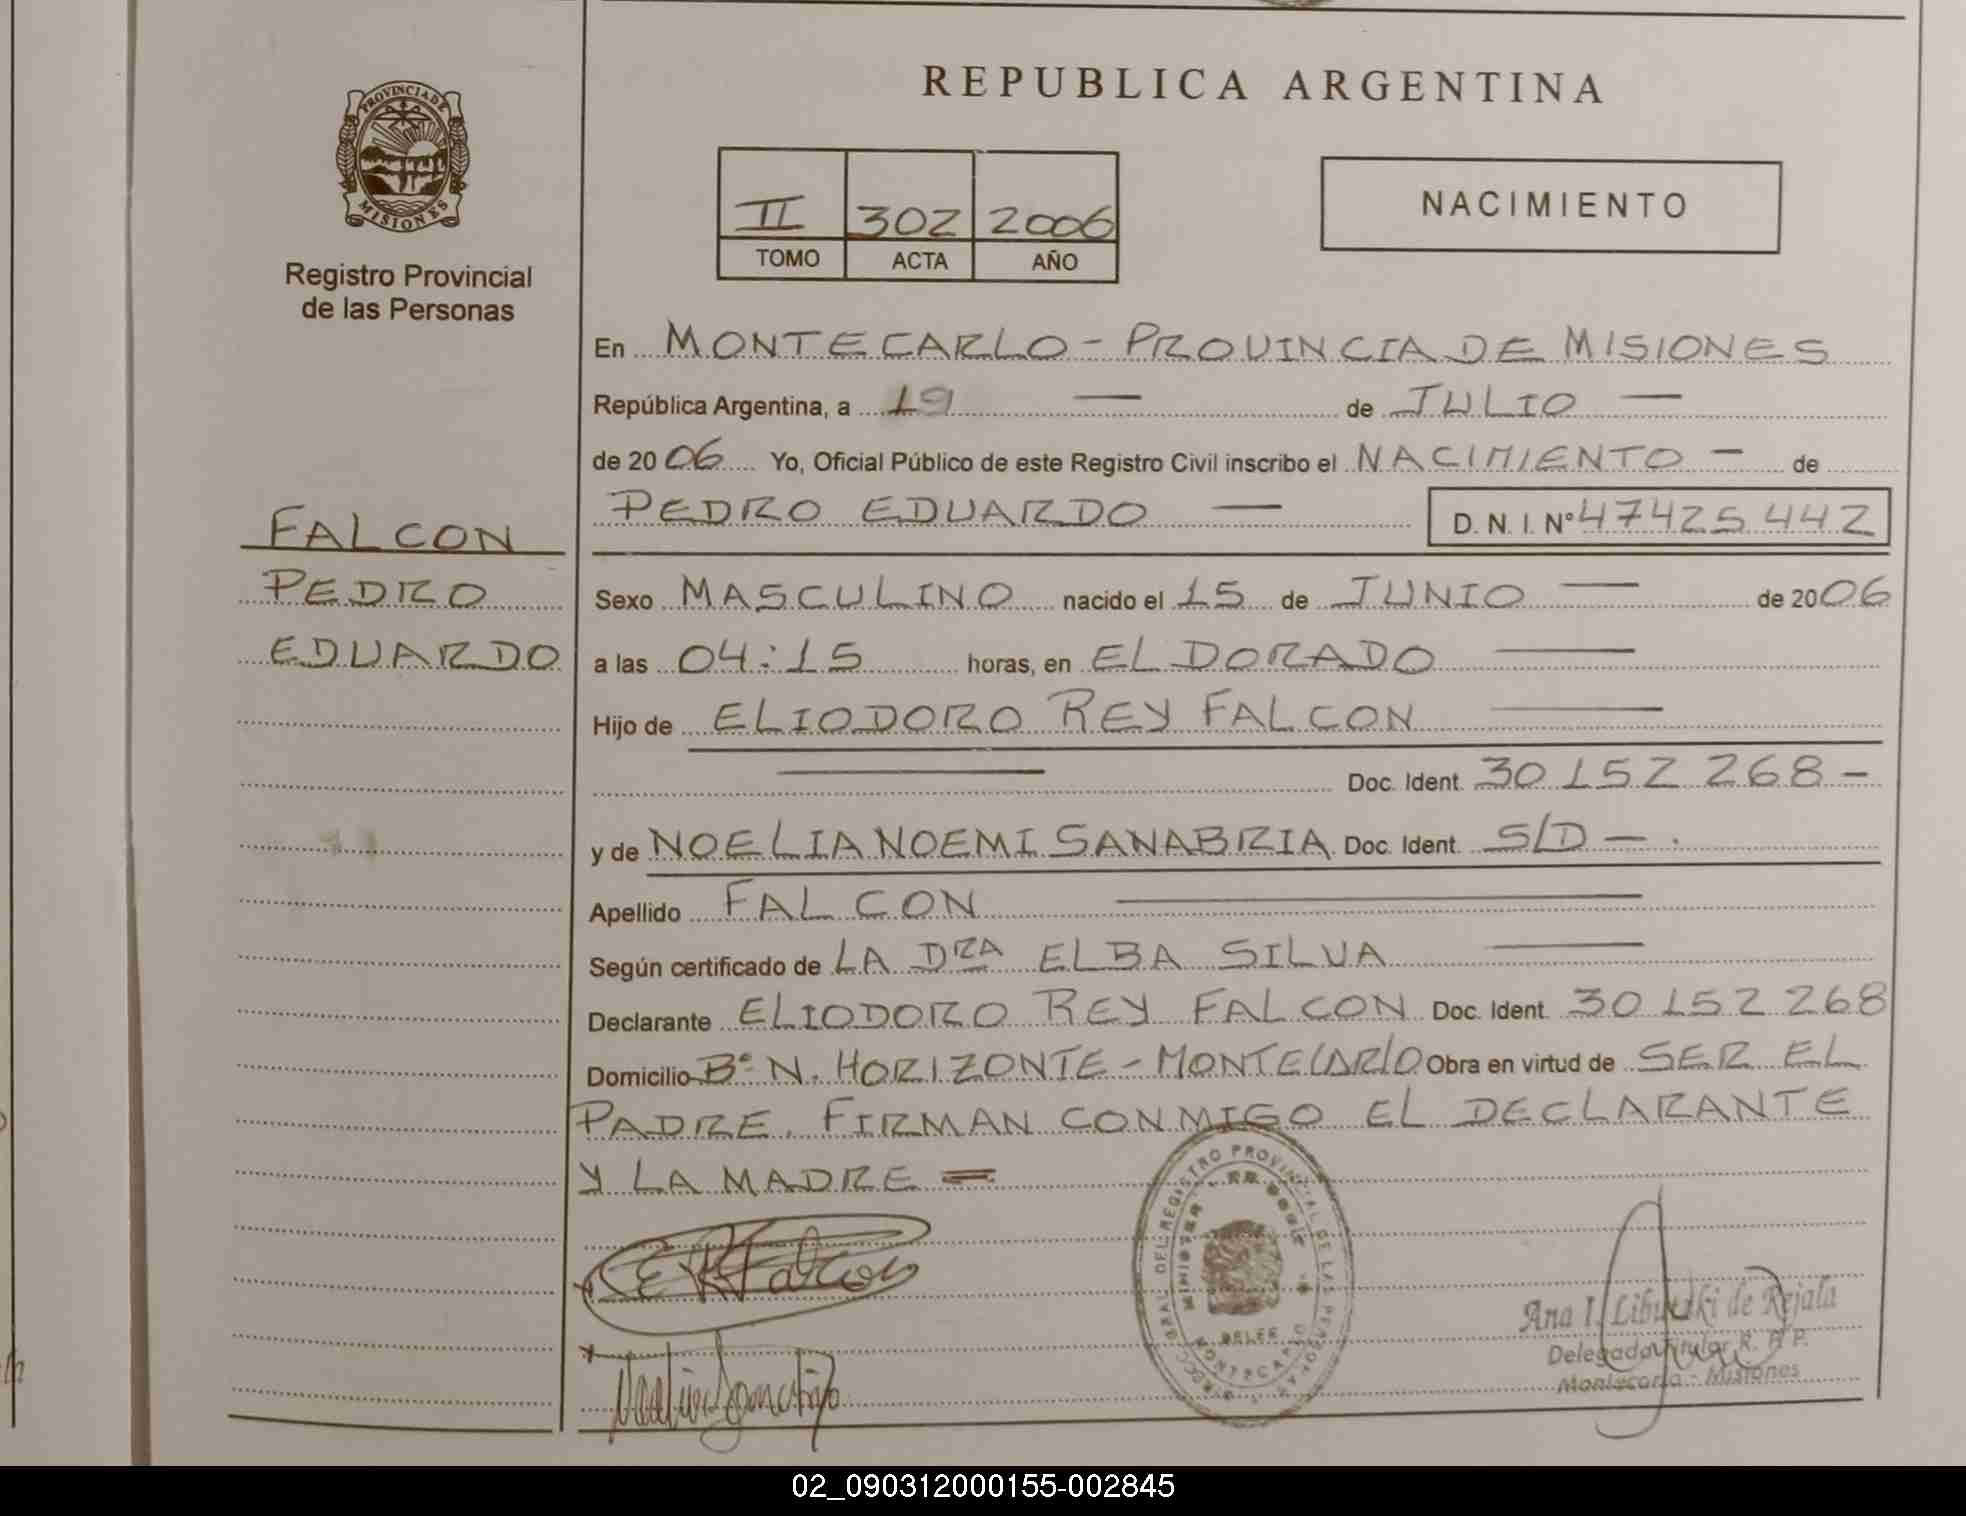 REPUBLICA ARGENTINA
PROVINCIA DE
MISIONES
Registro Provincial
de las Personas
II 302 2006
TOMO ACTA AÑO
NACIMIENTO
En MONTECARLO - PROVINCIA DE MISIONES
República Argentina, a 19 — de JULIO —
de 2006 Yo, Oficial Público de este Registro Civil inscribo el NACIMIENTO — de
PEDRO EDUARDO — D. N. I. Nº 47425442
FALCON
PEDRO
EDUARDO
Sexo MASCULINO nacido el 15 de JUNIO — de 2006
a las 04:15 horas, en EL DORADO —
Hijo de ELIODORO REY FALCON —
— Doc. Ident. 30 152 268 -
y de NOELIA NOEMI SANABRIA Doc. Ident. S/D — .
Apellido FALCON —
Según certificado de LA DRA ELBA SILVA —
Declarante ELIODORO REY FALCON Doc. Ident. 30 152 268
Domicilio Bº N. HORIZONTE - MONTECARLO Obra en virtud de SER EL
PADRE. FIRMAN CONMIGO EL DECLARANTE
Y LA MADRE =
E R Falcon
Ana I. Libutzki de Rejala
Delegada Titular R. P. P.
Montecarlo - Misiones
02_090312000155-002845